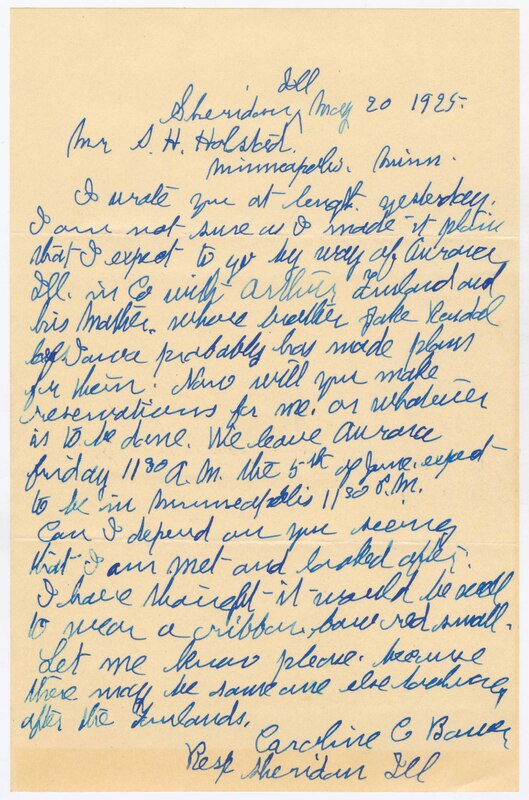 Ill
Sheridan, May 20 1925.
Mr S. H. Holstad.
Minneapolis. Minn.
I wrote you at length yesterday.
I am not sure as I made it plain
that I expect to go by way of Aurora
Ill. in Co with Arthur Finland and
his Mother. whose brother Jake
of Iowa probably has made plans
for them. Now will you make
reservations for me. or whatever
is to be done. We leave Aurora
friday 11 30 A.M. the 5th of June. expect
to be in Minneapolis 11 30 P.M.
Can I depend on you seeing
that I am met and looked after.
I have thought it would be well
to wear a ribbon bow red small.
Let me know please. because
there may be someone else looking
after the Finlands.
Caroline C
Resp Sheridan Ill